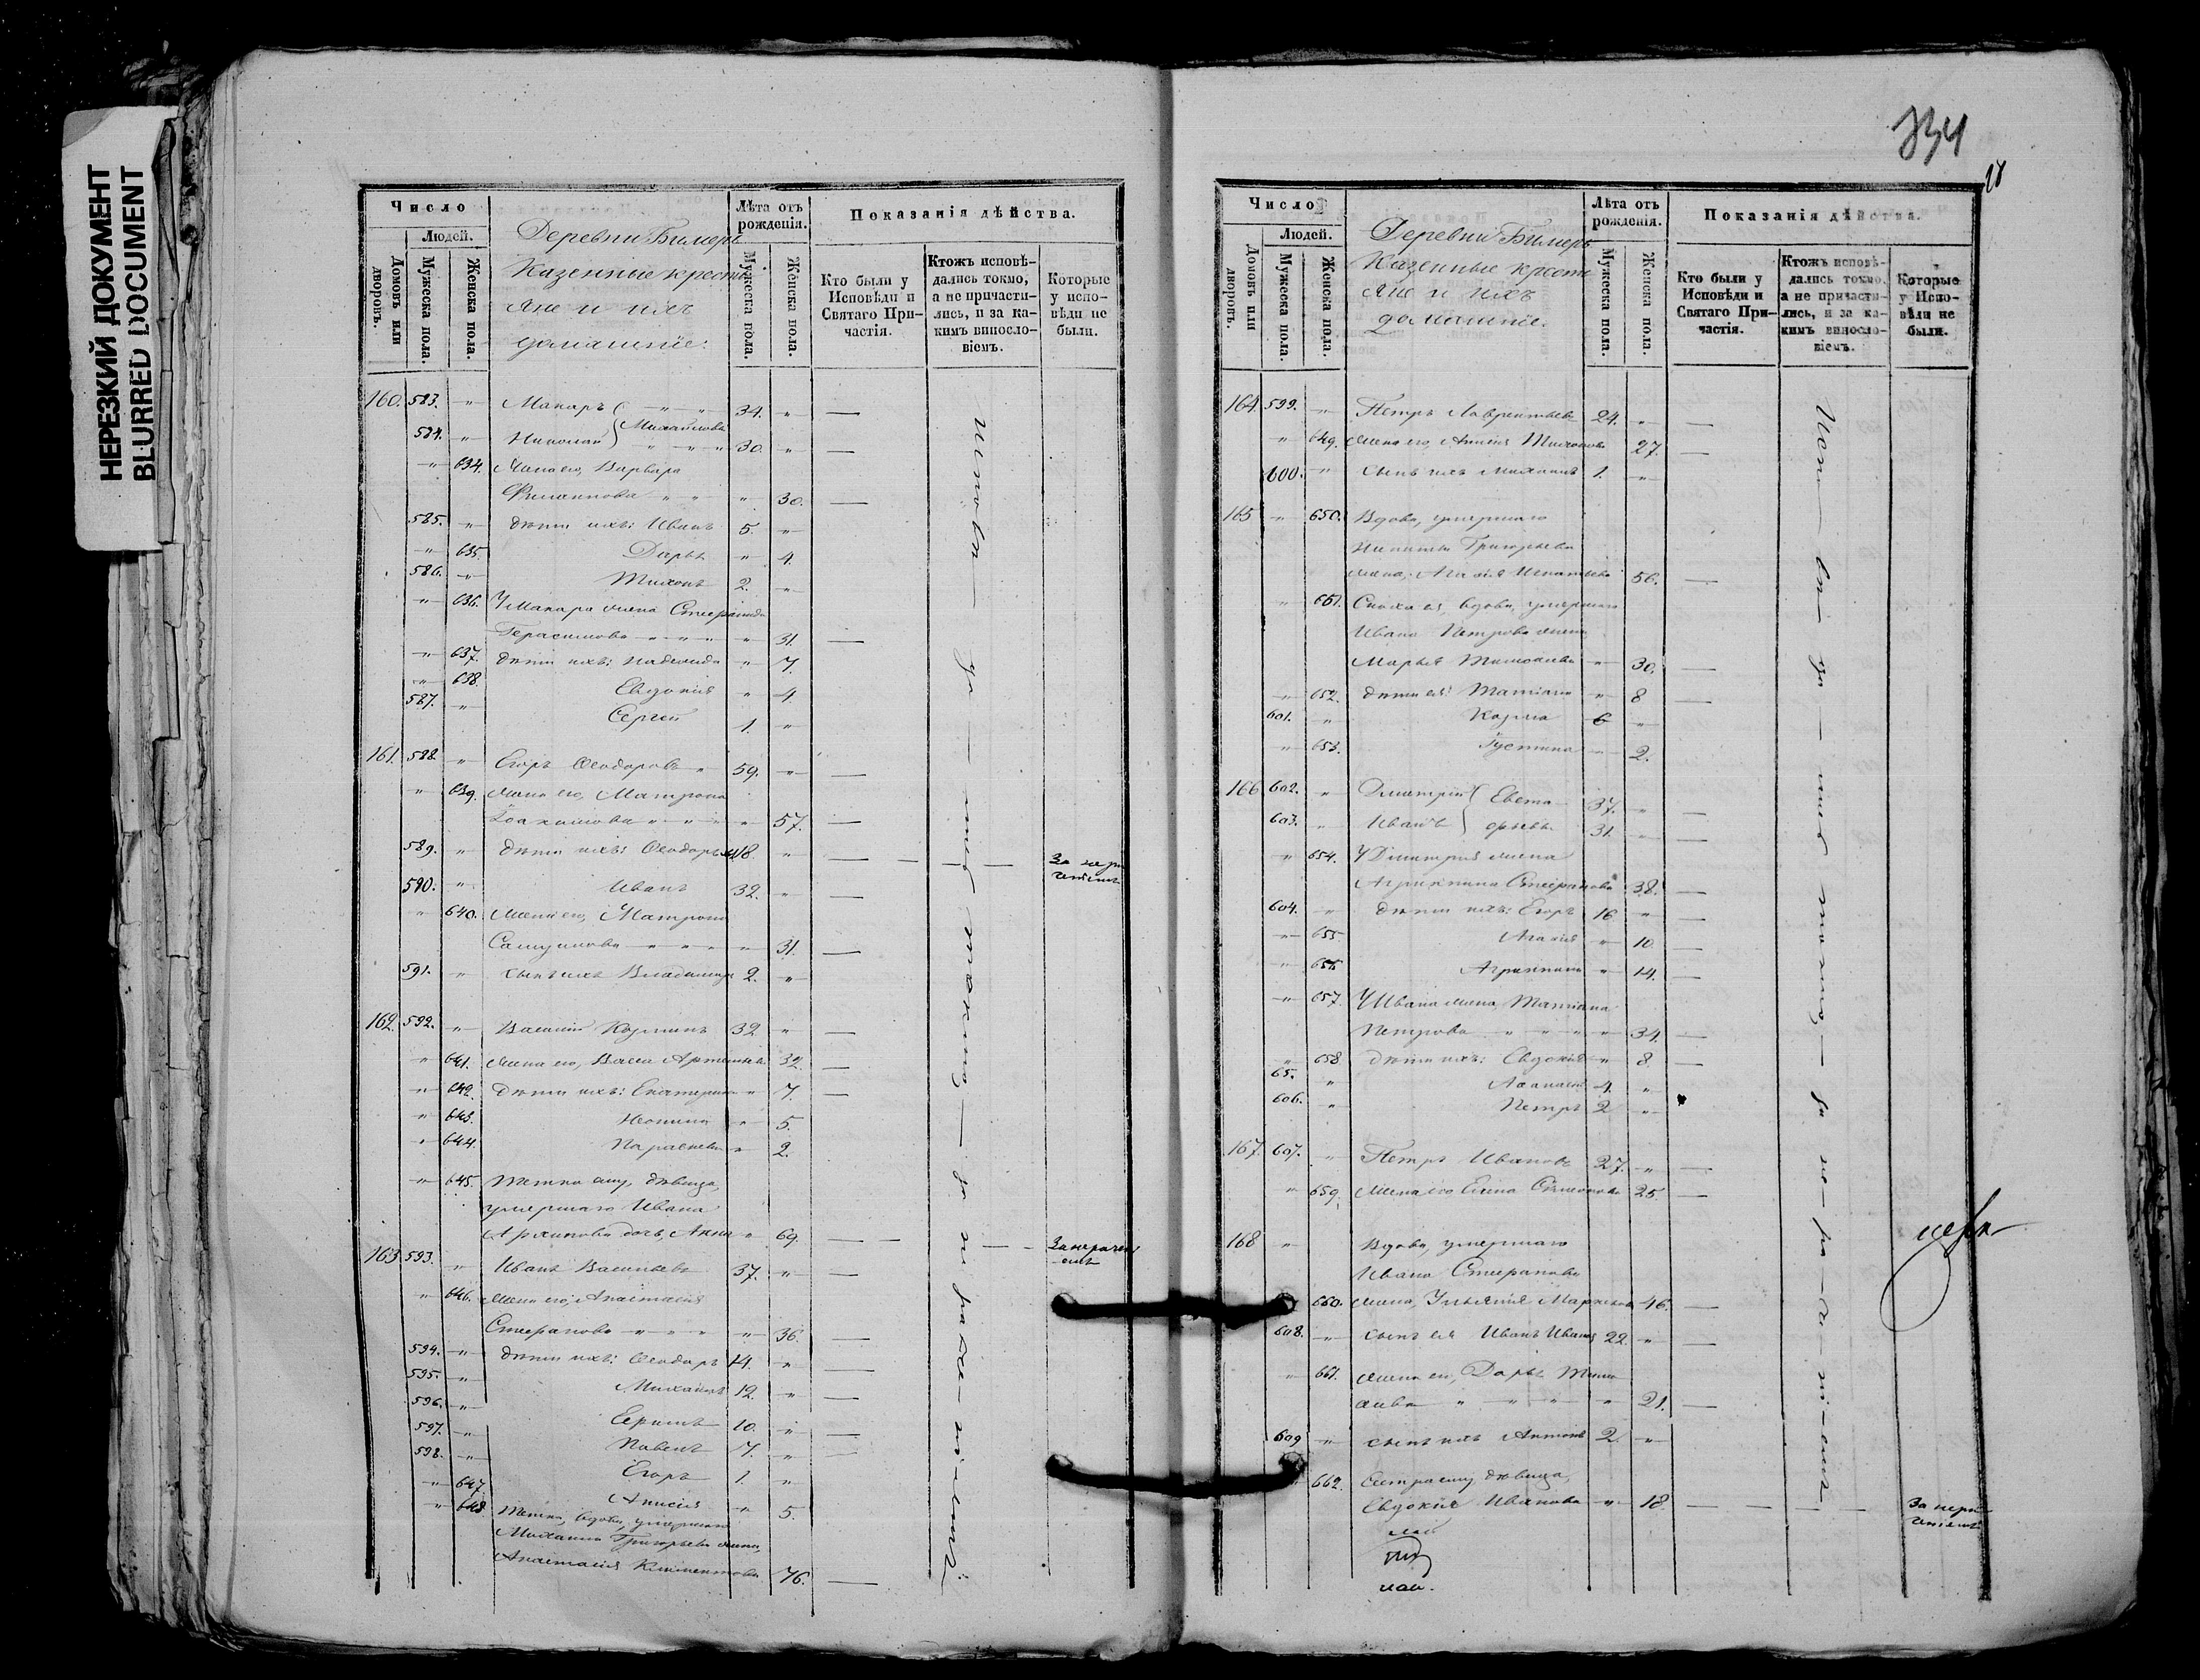 НЕРЕЗКИЙ ДОКУМЕНТ
BLURRED DOCUMENT
Число
Людей.
Домовъ или дворовъ.
Мужеска пола.
Женска пола.
Деревни Бимерь
Казенные кресть
яне и ихъ
домашніе:
Лѣта отъ рожденія.
Мужеска пола.
Женска пола.
Показанія дѣйства.
Кто были у Исповѣди и Святаго При-
частія.
Ктожъ исповѣ-
дались токмо,
а не причасти-
лись, и за ка-
кимъ виносло-
віемъ.
Которые
у испо-
вѣди не
были.
160. 583. " Макаръ 34. "
Михайловы
584. " Николай 30. "
" 634. Жена его, Варвара
Филиппова " 30.
585. " дѣти ихъ: Иванъ 5. "
" 635. Дарья " 4.
586. " Тихонъ 2. "
" 636. У Макара жена Стефанида
Герасимова " 31.
" 637. дѣти ихъ: Надежда " 7.
" 638. Евдокія " 4.
587. " Сергій 1. "
161. 588. " Егоръ Ѳеодоровъ 59. "
" 639. Жена его, Матрона
Іоакимова " 57.
589. " дѣти ихъ: Ѳеодоръ 18. "
590. " Иванъ 32. "
" 640. Жена его, Матрона
" 31.
591. " сынъ ихъ Владиміръ 2. "
162. 592. " Василій Козминъ 32 "
" 641. Жена его, Васса Артемьева 32.
" 642. Дѣти ихъ: Екатерина " 7.
" 643. " 5.
" 644. Параскева " 2.
" 645. Тетка ему, дѣвица,
умершаго Ивана
Архипова дочь, Анна " 69.
163 593. " Иванъ Васильевъ 37. "
" 646. Жена его, Анастасія
Стефанова " 36.
594. " дѣти ихъ: Ѳеодоръ 14. "
595. " Михаилъ 12. "
596. " Ефимъ 10. "
597. " Павелъ 7. "
598. " Егоръ 1. "
" 647 Анисія " 5.
" 648 Тетка, вдова, умершаго
Михаила Григорьева жена,
Анастасія Климентова 76.
334
Число
Людей.
Домовъ или дворовъ.
Мужеска пола.
Женска пола.
Деревни Бимерь
Казенные кресть
яне и ихъ
домашніе.
Лѣта отъ рожденія.
Мужеска пола.
Женска пола.
Показанія дѣйства.
Кто были у
Исповѣди и
Святаго При-
частія.
Ктожъ исповѣ-
дались токмо,
а не причасти-
лись, и за ка-
кимъ виносло-
віемъ.
Которые
у Испо-
вѣди не
были.
164. 599. " Петръ Лаврентьевъ 24. "
" 649. Жена его, Анисія 27.
600. " сынъ ихъ Михаилъ 1. "
165 " 650. Вдова, умершаго
Григорьева
жена, Игнатьева 56.
" 651. Сноха ея, вдова, умершаго
Ивана Петрова жена
Марья Тимоѳеева " 30.
" 652. дѣти ея: Татіана " 8
601. " Козма 6 "
" 653. Іустина " 2.
166 602. " Димитрій Евста 37. "
603. " Иванъ фьевы 31. "
" 654. У Димитрія жена
Агриппина Стефанова 38.
604. " дѣти ихъ: Егоръ 16 "
" 655 " 10
" 656 Агриппина " 14.
" 657. У Ивана жена, Татіана
Петрова " 34.
" 658 дѣти ихъ: Евдокія " 8.
65. " Аѳанасій 4. "
606. " Петръ 2 "
167. 607. " Петръ Ивановъ 27. "
" 659. Жена его Елена Симонова 25.
168 " Вдова, умершаго
Ивана Стефанова
660. жена, Ульянія Маркова 46.
608. " сынъ ея Иванъ Ивановъ 22. "
" 661. Жена его, Дарья Тимо
ѳеева " 21.
609 " сынъ ихъ Антонъ 2. "
662. Сестра ему, дѣвица,
Евдокія Иванова " 18.